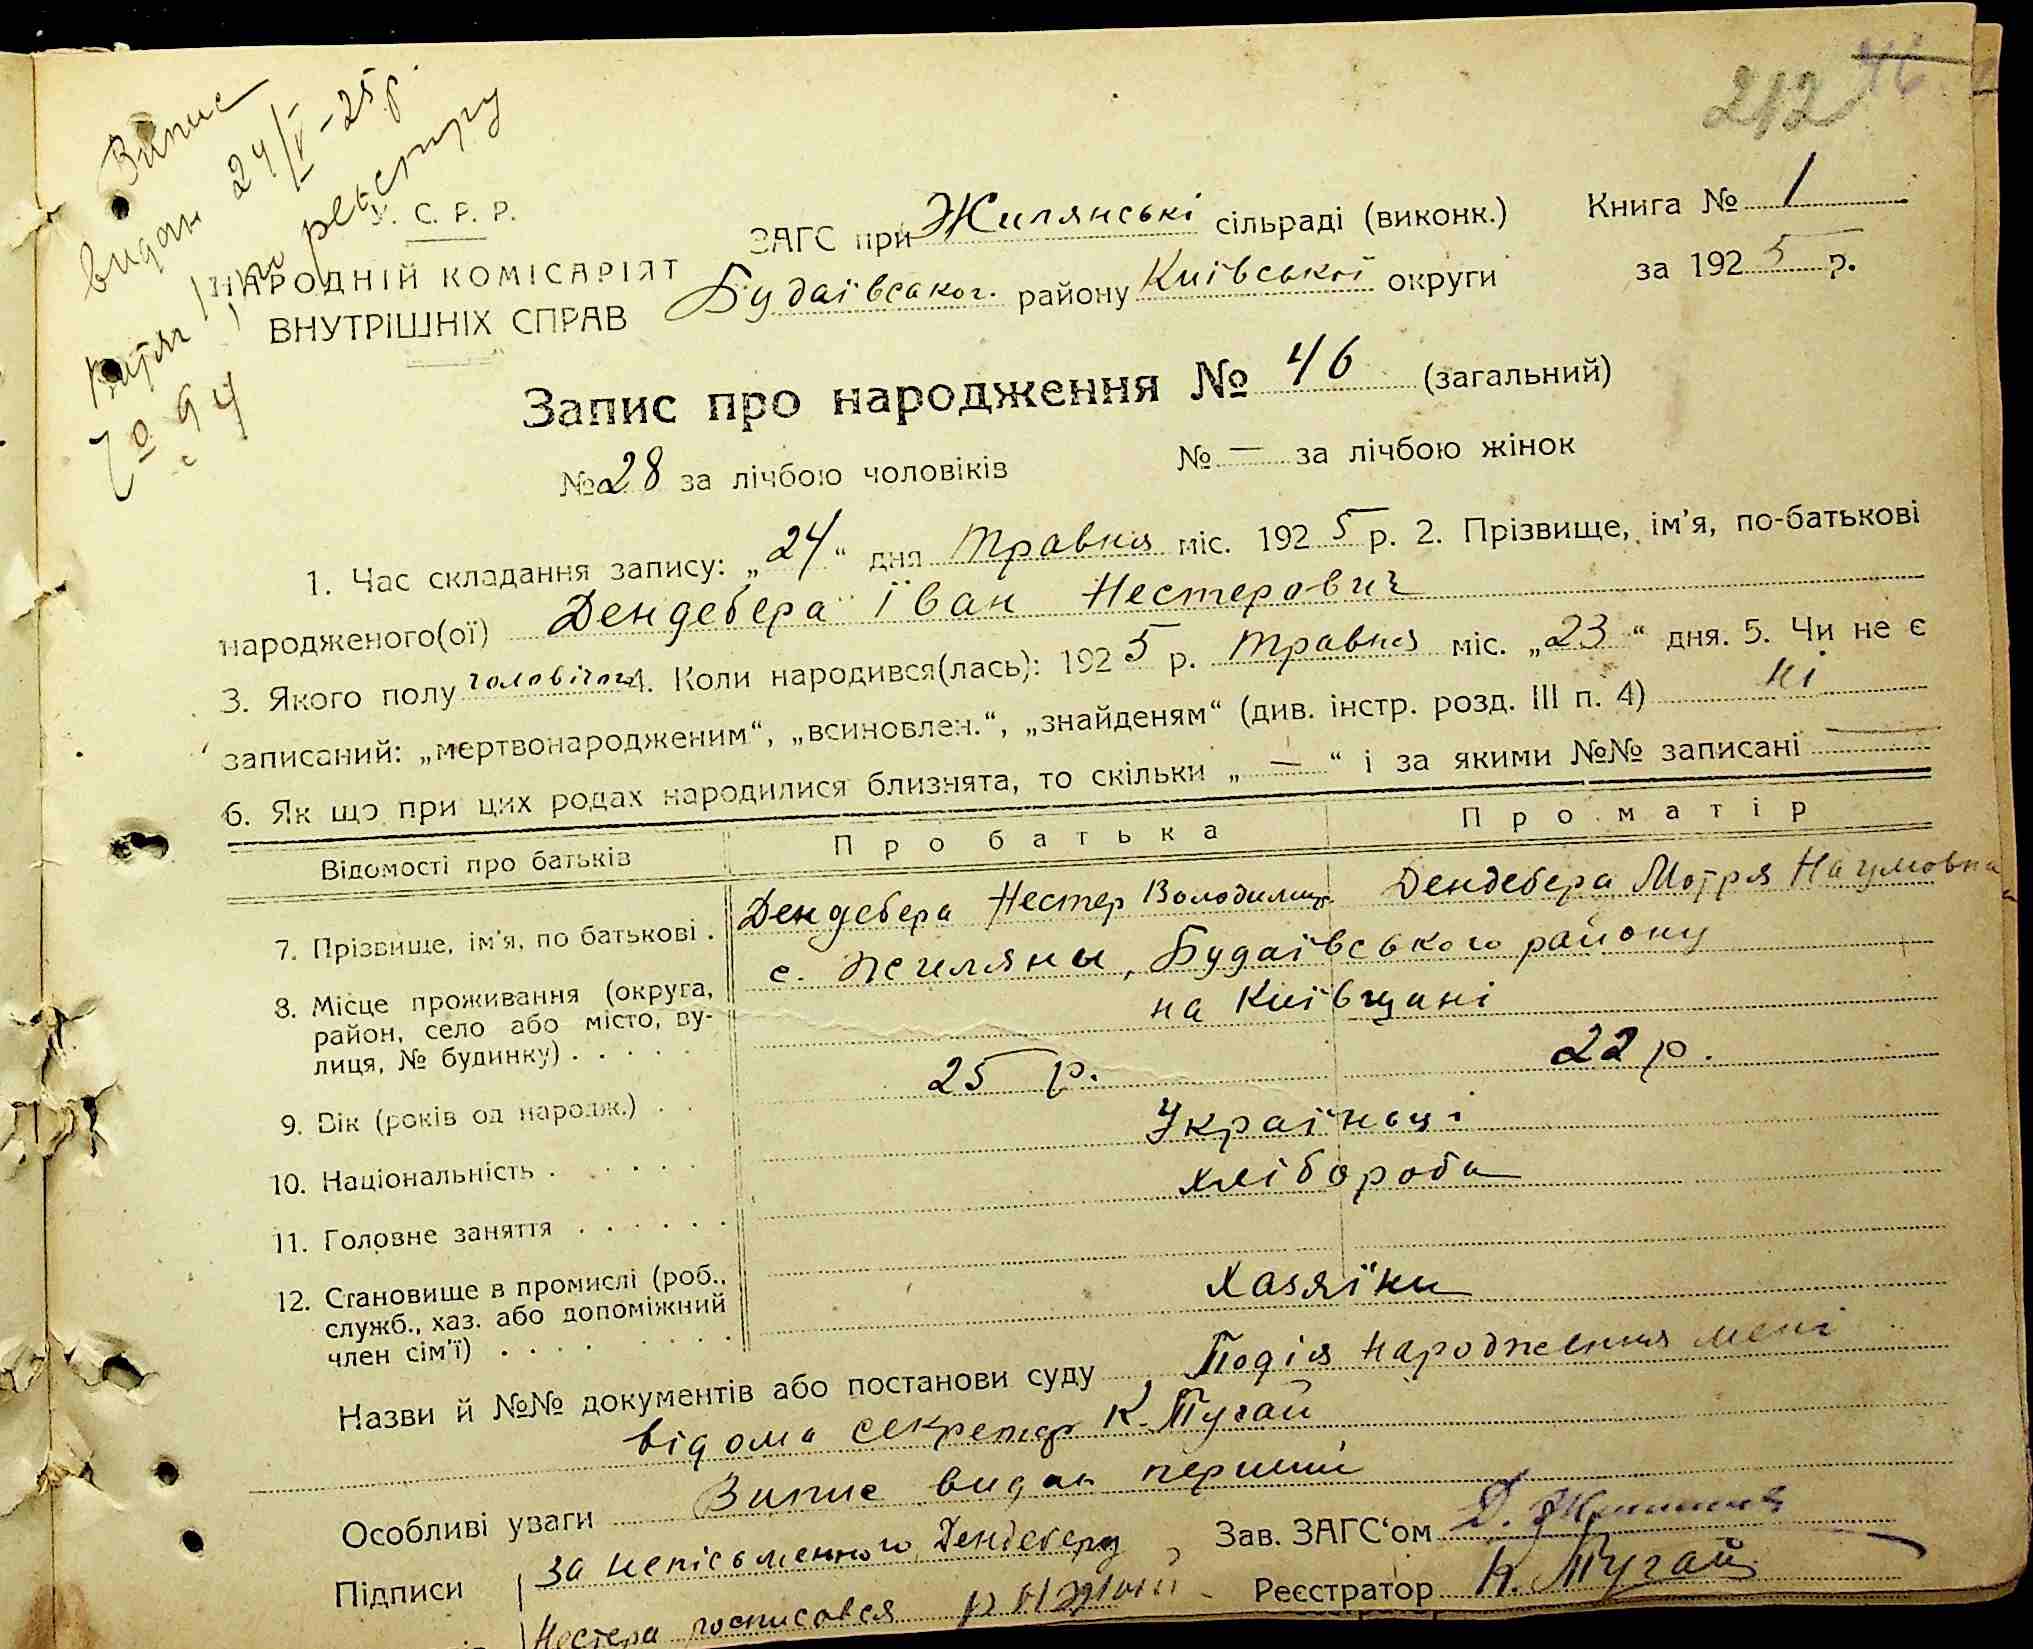 212 46
Випис
видан 24/V–25р.
Витяг по реєстру
У. С. Р. Р.
НАРОДНІЙ КОМІСАРІЯТ
ВНУТРІШНІХ СПРАВ
ЗАГС при Жилянські сільраді (виконк.) Книга № 1
Будаївськог. району Київської округи за 1925 р.
Запис про народження № 46 (загальний)
№ 28 за лічбою чоловіків № — за лічбою жінок
1. Час складання запису: „24“ дня травня міс. 1925 р. 2. Прізвище, ім'я, по-батькові
народженого(ої) Дендебера Їван Нестерович
3. Якого полу чоловічог. 4. Коли народився(лась): 1925 р. травня міс. „23“ дня. 5. Чи не є
записаний: „мертвонародженим“, „всиновлен.“, „знайденям“ (див. інстр. розд. III п. 4) ні
6. Як що при цих родах народилися близнята, то скільки „ — “ і за якими №№ записані —
Відомості про батьків Про батька Про матір
7. Прізвище, ім'я, по батькові . Дендебера Нестер Володимир. Дендебера Мотря Наумовна
8. Місце проживання (округа, с. Жиляны, Будаївського району
район, село або місто, ву- на Київщині
лиця, № будинку) . . . . .
9. Вік (років од народж.) . . 25 р. 22 р.
10. Національність . . . . . . Українці
11. Головне заняття . . . . . . хлібороба
12. Становище в промислі (роб.,
служб., хаз. або допоміжний Хазяїни
член сім'ї) . . . . . . . .
Назви й №№ документів або постанови суду Подія народження мені
відома секретар К. Тугай
Особливі уваги Випис видан перший
Підписи За неписьменного Дендеберу Зав. ЗАГС'ом Д.
Нестера росписовся Реєстратор К. Тугай